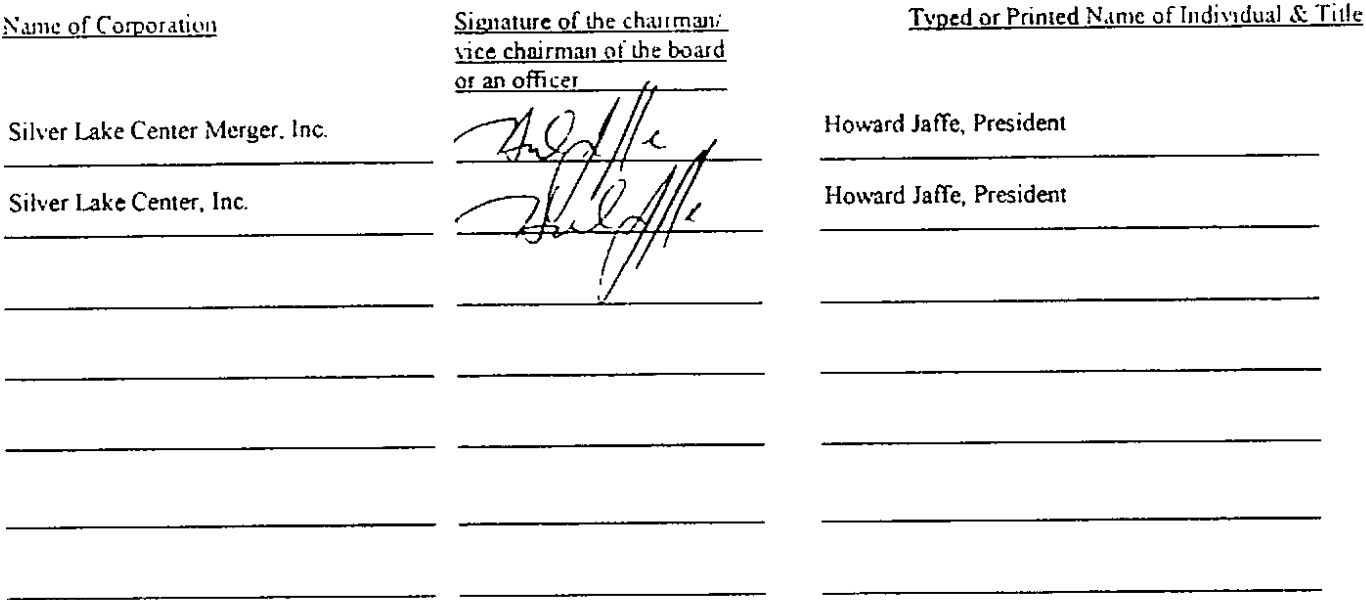 Name of Corporation
Signature of the chairman/
vice chairman of the board
or an officer
Typed or Printed Name of Individual & Title
Silver Lake Center Merger, Inc.
Howard Jaffe, President
Silver Lake Center, Inc.
Howard Jaffe, President